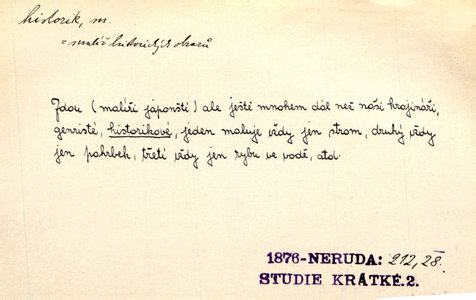 historik, m.
= malíř historických obrazů
Jdou (malíři japonští) ale ještě mnohem dál než naši krajináři,
genristé, historikové, jeden maluje vždy jen strom, druhý vždy
jen pahrbek, třetí vždy jen rybu ve vodě, atd.
1876-NERUDA: 212, 28.
STUDIE KRÁTKÉ.2.